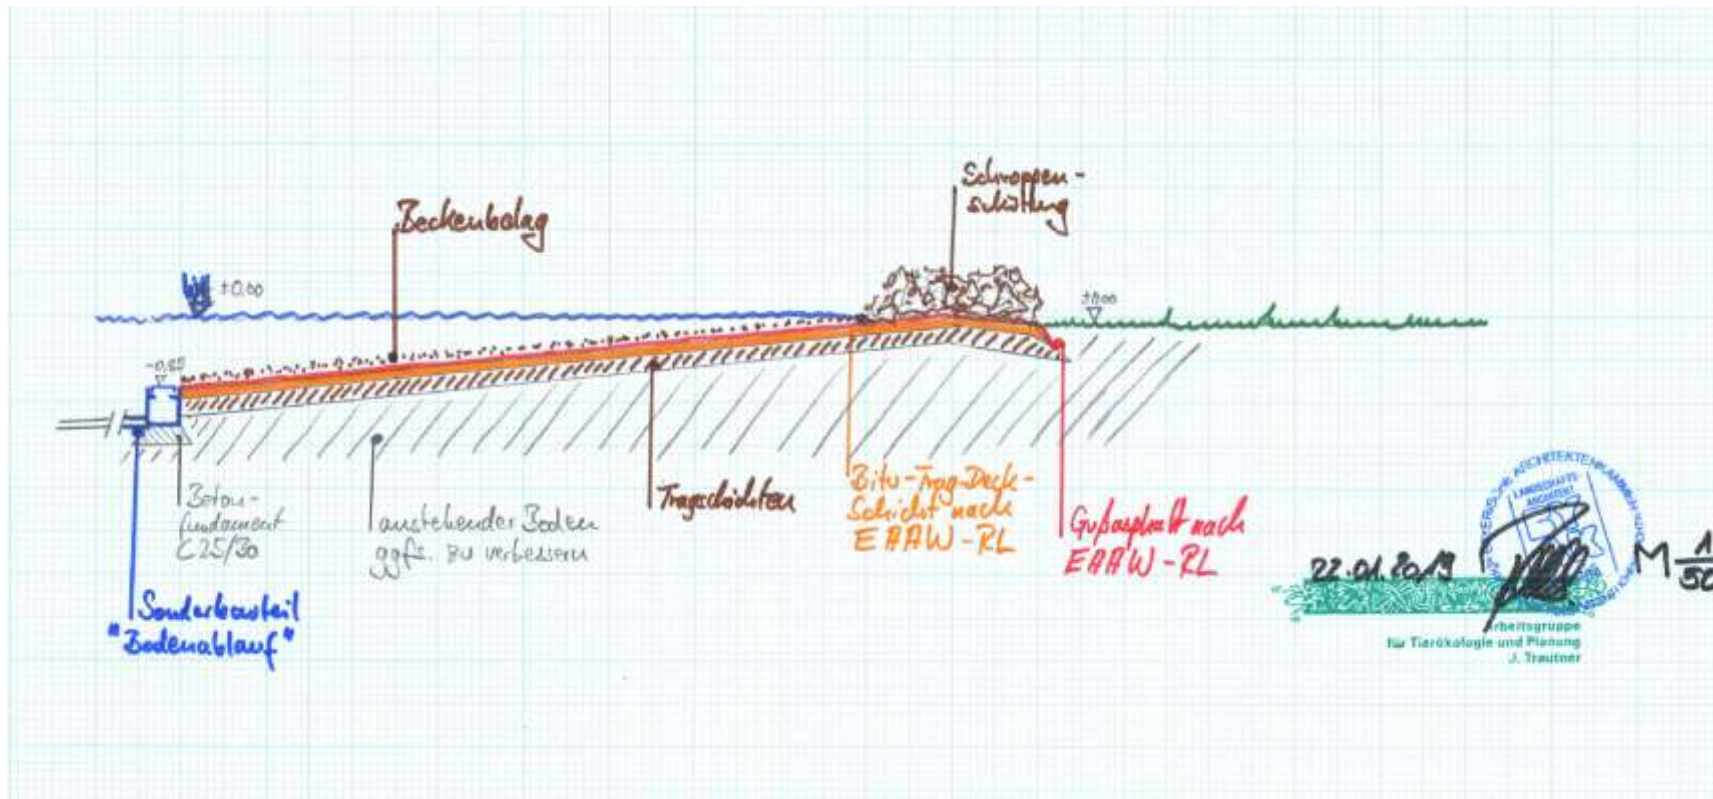 Schroppen-
schüttung
Beckenbelag
±0.00
±0.00
Beton-
fundament
C25/30
anstehender Boden
ggfs. zu verbessern
Tragschichten
Bitu-Trag-Deck-
Schicht nach
EAAW-RL
Gußasphalt nach
EAAW-RL
Sonderbauteil
"Bodenablauf"
22.01.2019
M 1
50
ARCHITEKTENKAMMER
LANDSCHAFTS-
ARCHITEKT
Arbeitsgruppe
für Tierökologie und Planung
J. Trautner